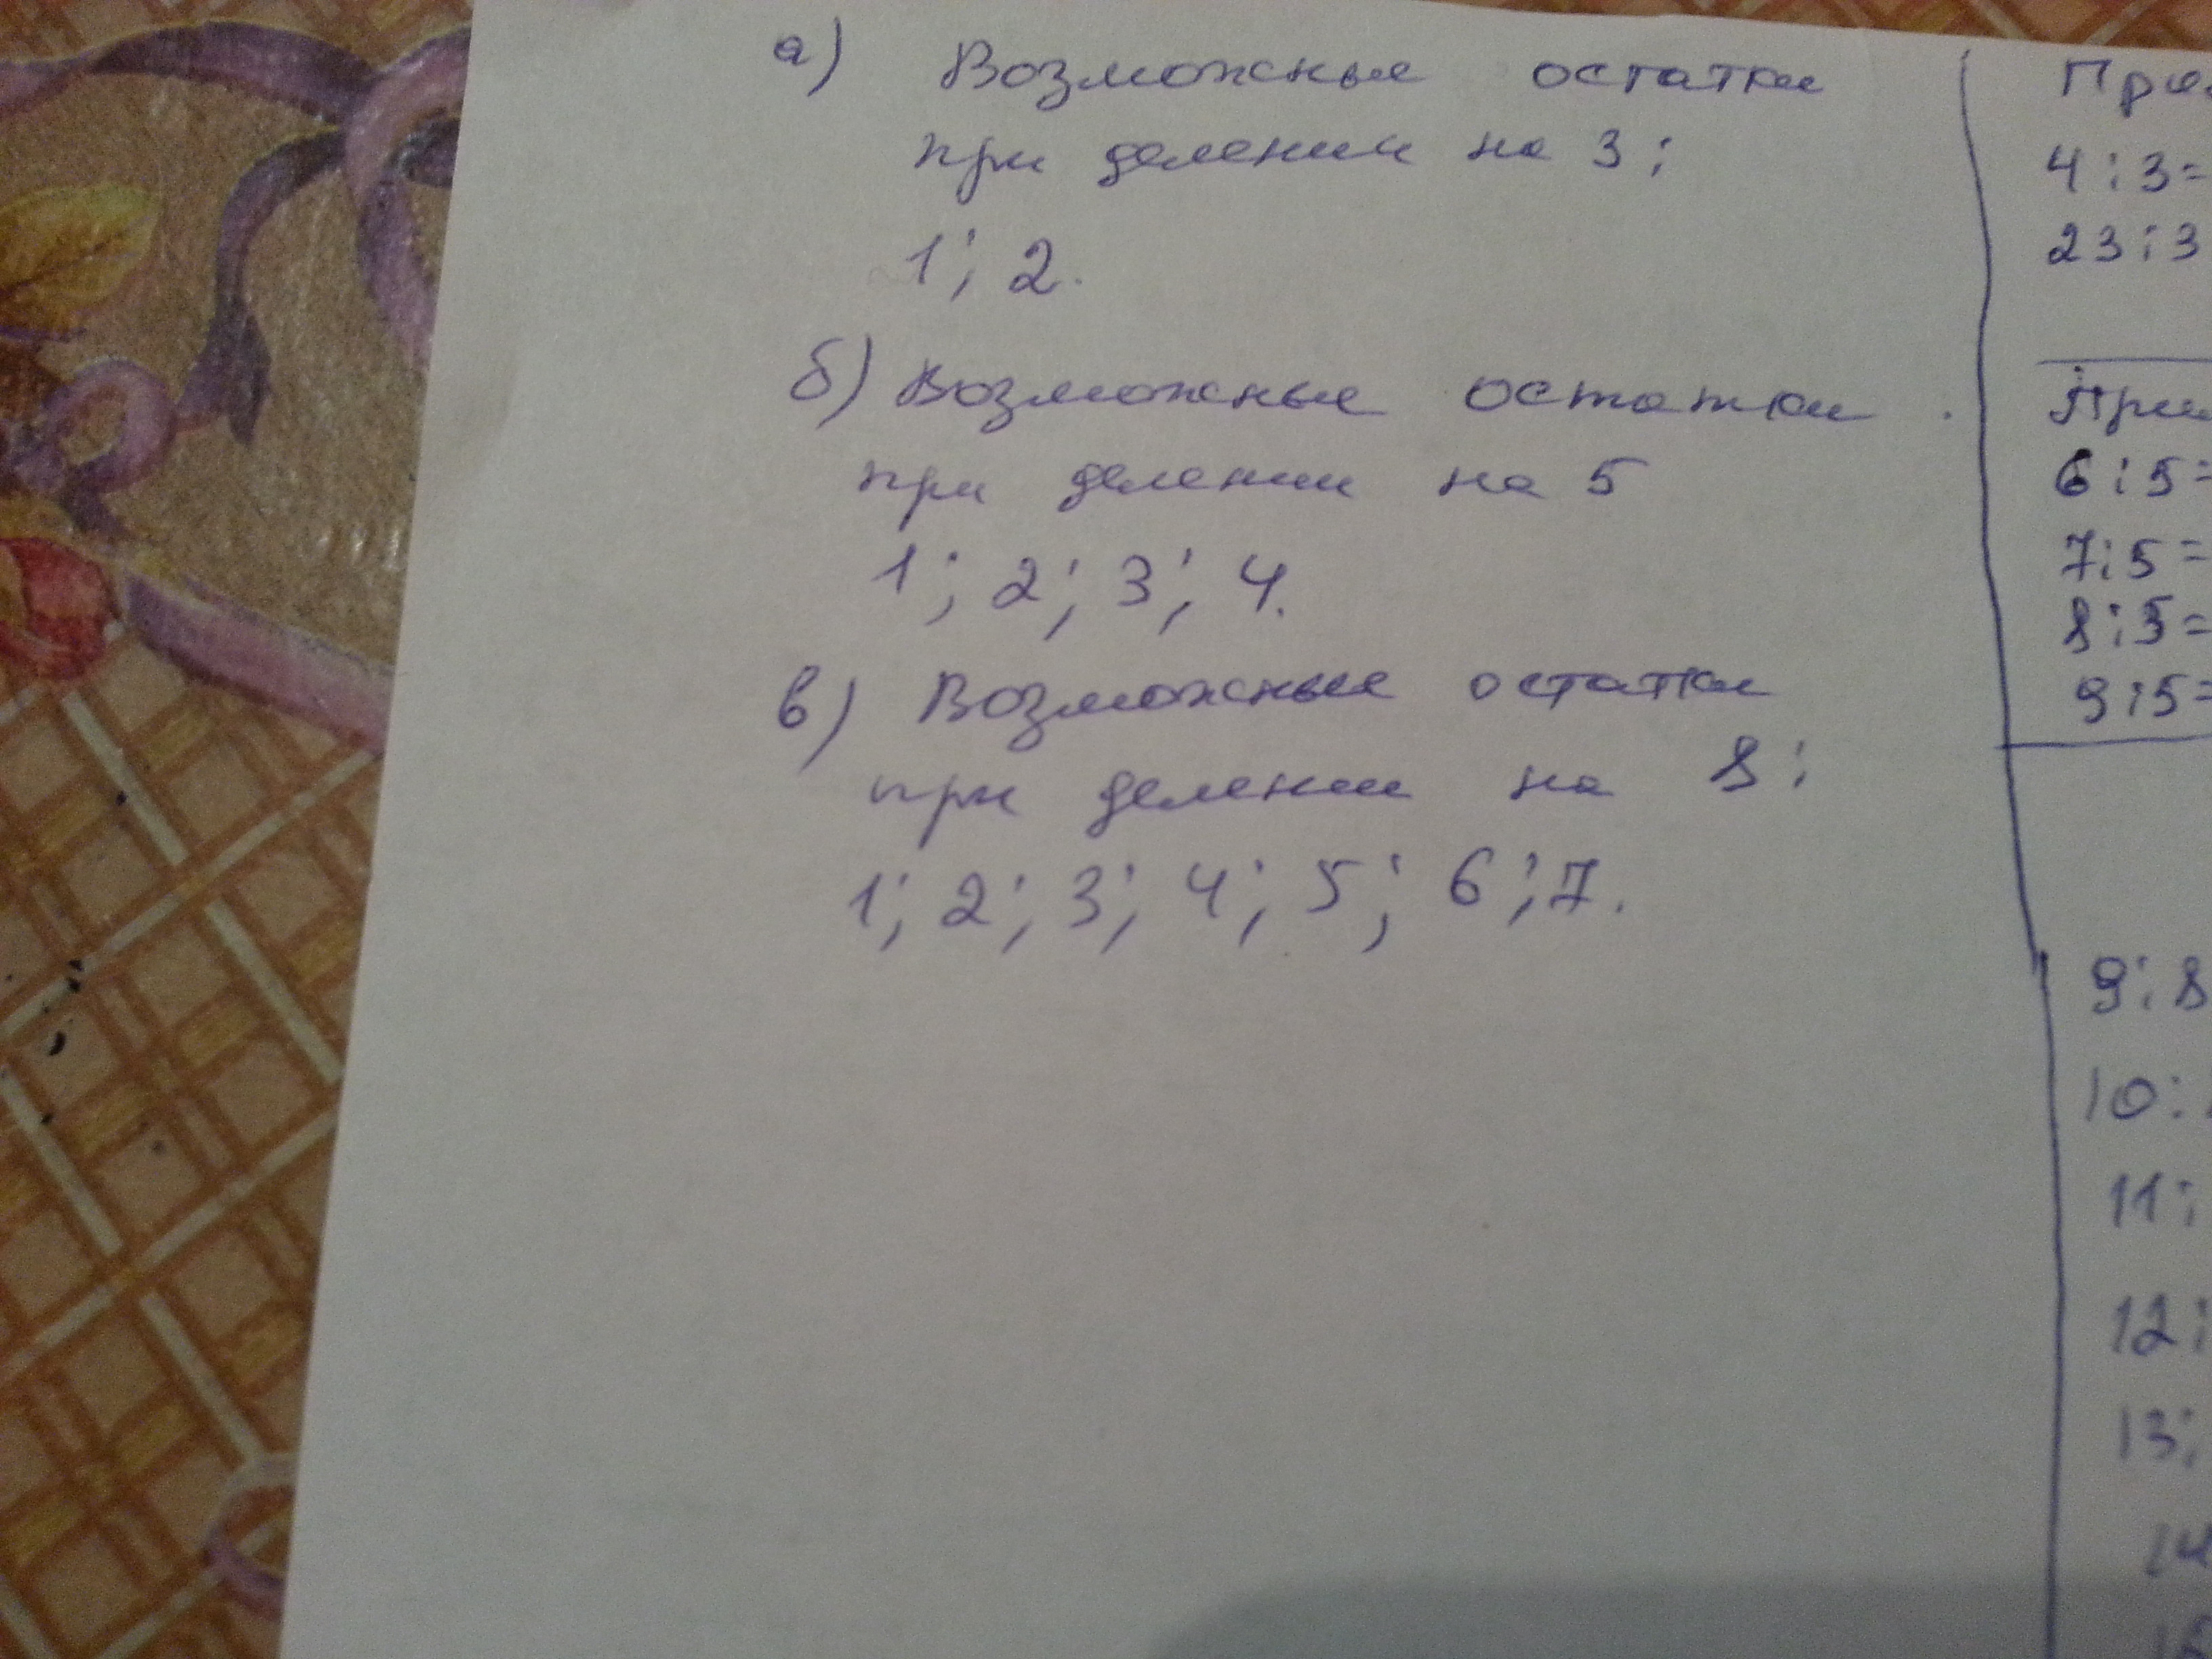 а) Возможные остатки
при делении на 3:
1; 2.
б) Возможные остатки
при делении на 5
1; 2; 3; 4.
в) Возможные остатки
при делении на 8:
1; 2; 3; 4; 5; 6; 7.
4:3=
23:3
6:5=
7:5=
8:5=
9:5=
9:8
10:
11:
12:
13:
14